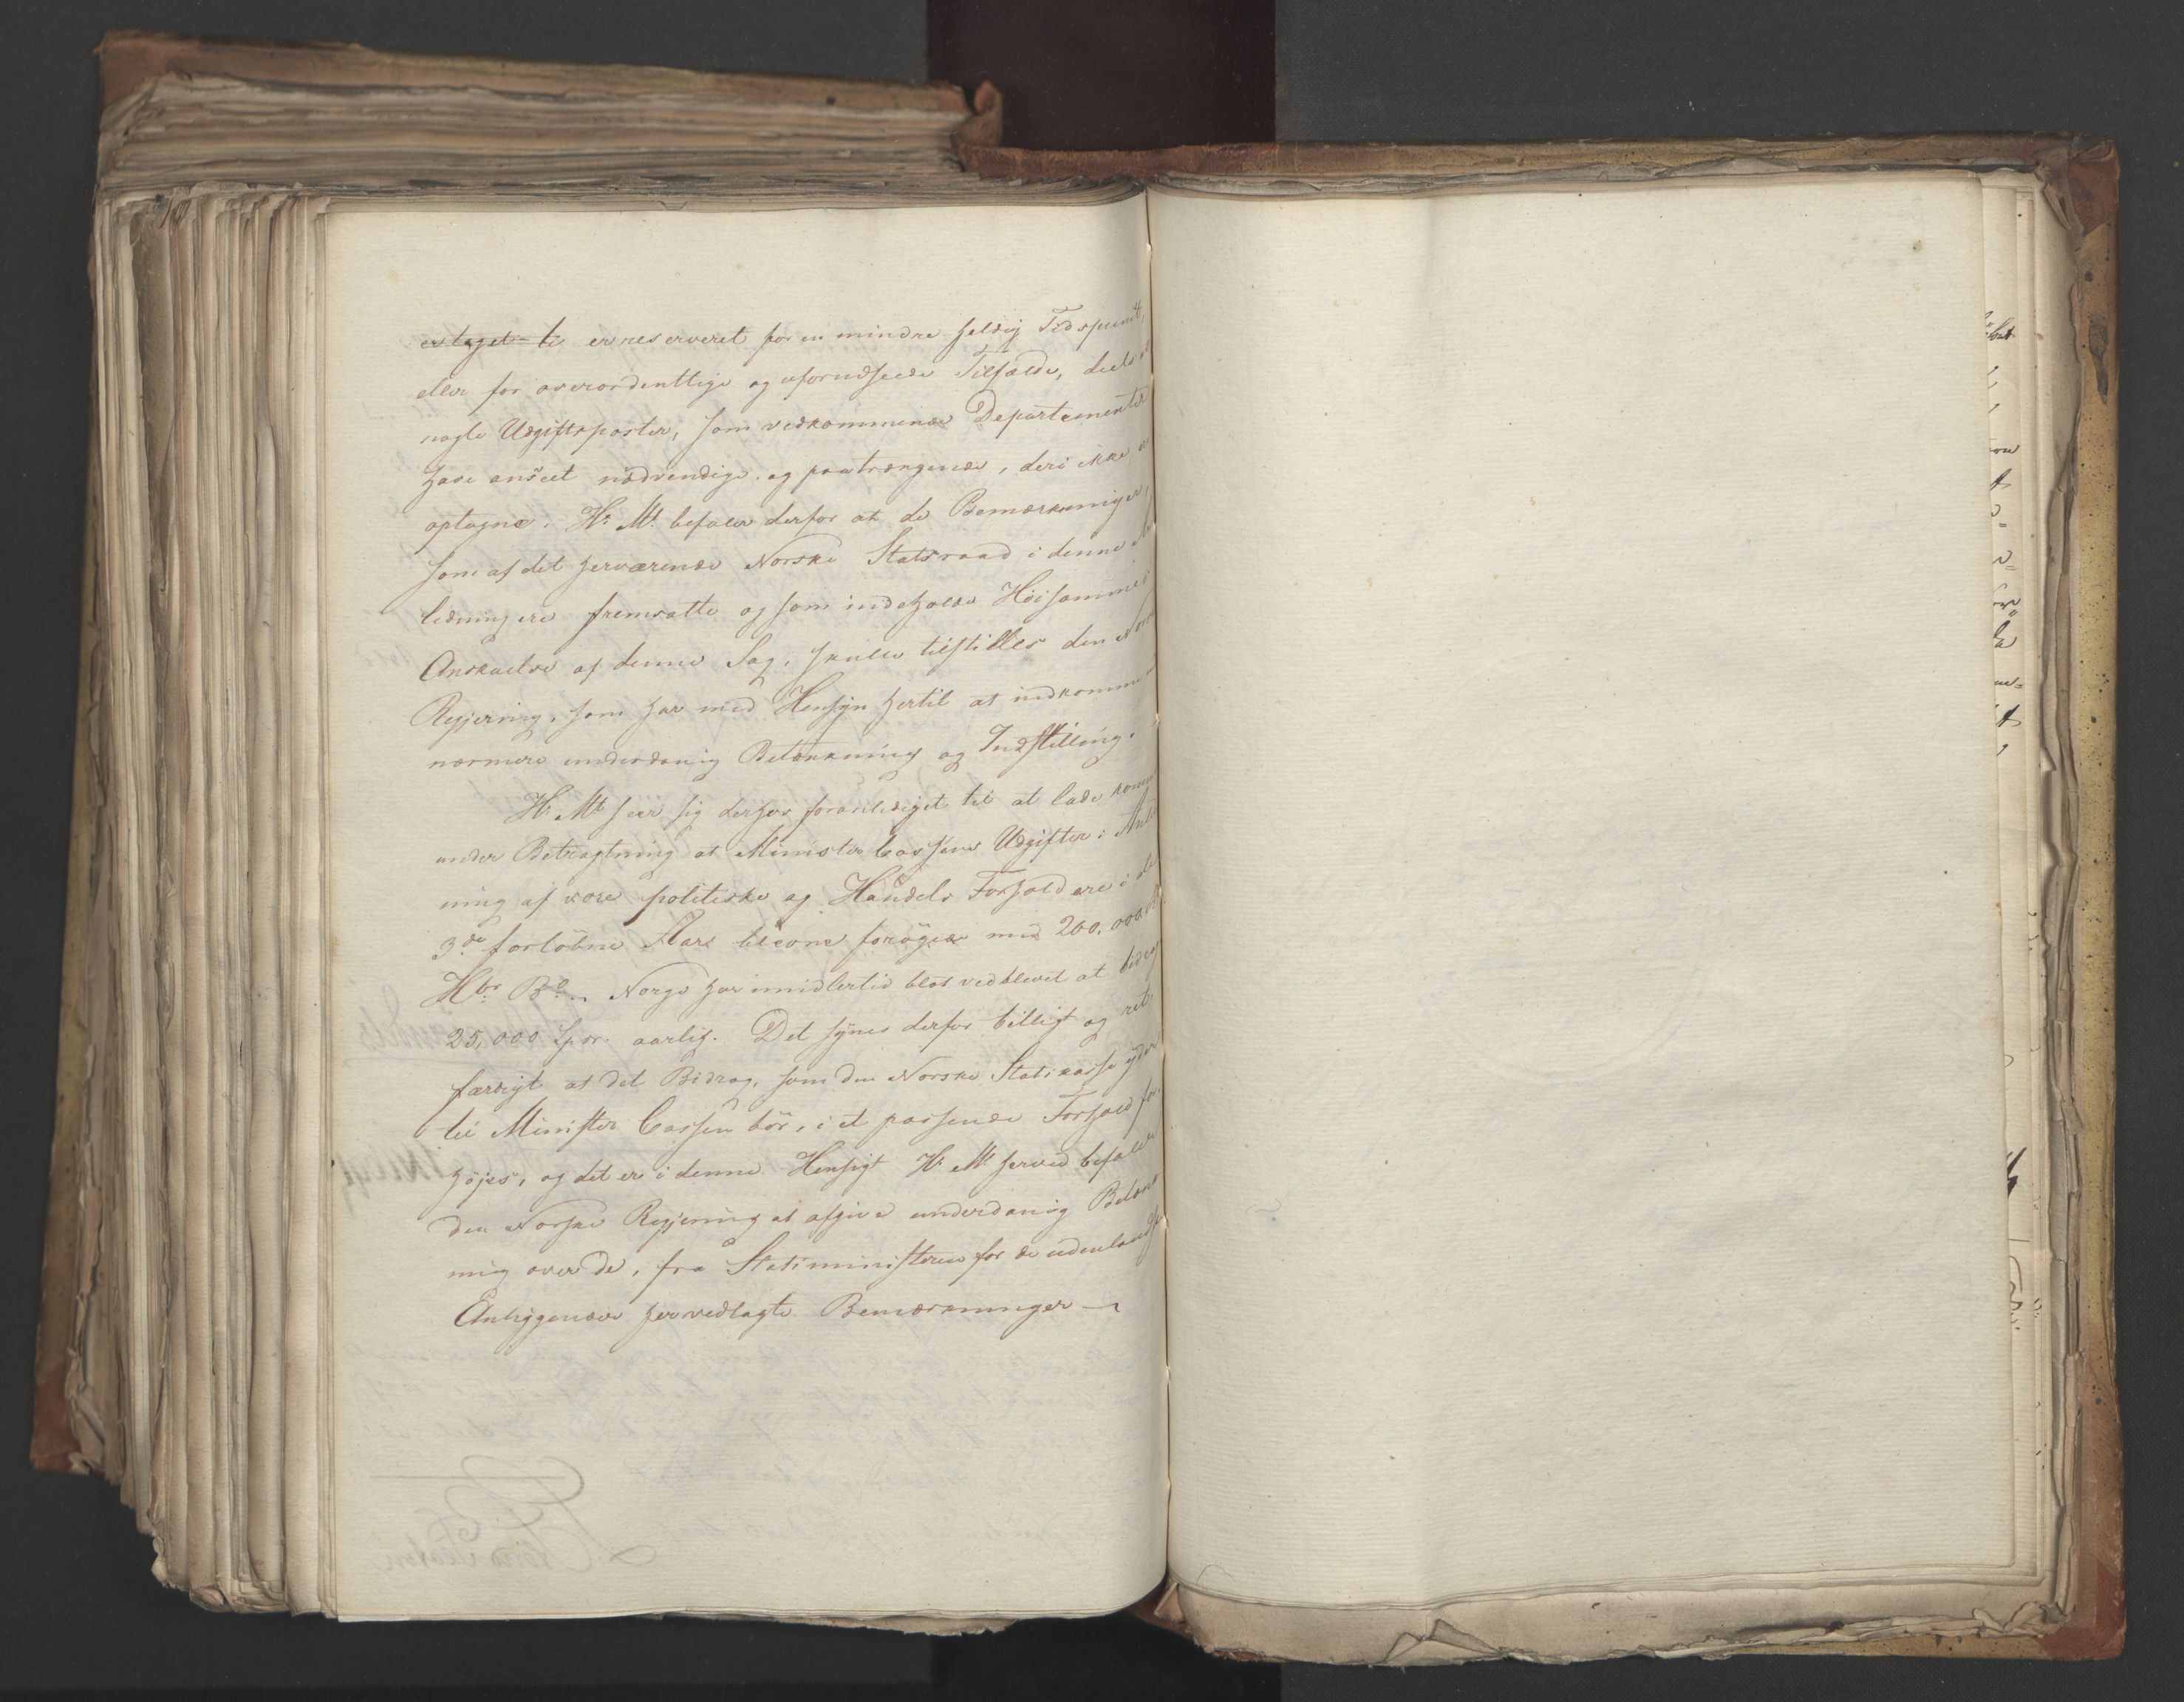 er taget ti er reserveret for en mindre heldig Tidspunct,
eller for overordentlige og uforudseede Tilfælde, deels at
nogle Udgiftsposter, som vedkommende Departementer
have anseet nödvendige og paatrængende, deri ikke ere
optagne. H. Mt befaler derfor at de Bemærkninger,
som af det herværende Norske Statsraad i denne An
ledning ere fremsatte og som indeholde Höisammes
Anskuelse af denne Sag, skulle tilstilles den Norske
Regjering, som har med Hensyn hertil at indkomme
nærmere underdanig Betænkning og Indstilling.
H. Mt seer sig derhos foranlediget til at lade komme
under Betragtning at Minister Cassens Udgifter i Anled
ning af vore politiske og Handels Forhold ere i de
3de forlöbne Aars blevne forögede med 200,000
Hbr Bo. Norge har imidlertid blot vedblevet at bidrage
25,000 Spdr. aarlig. Det synes derfor billigt og ret
færdigt at det Bidrag, som den Norske Statscasse yder
til Minister Cassen bör, i et passende Forhold for
höjes, og det er i denne Hensigt H. Mt herved befaler
den Norske Regjering at afgive underdanig Betænk
ning over de, fra Statsministeren for de udenlandske
Anliggender hervedlagte Bemærkninger